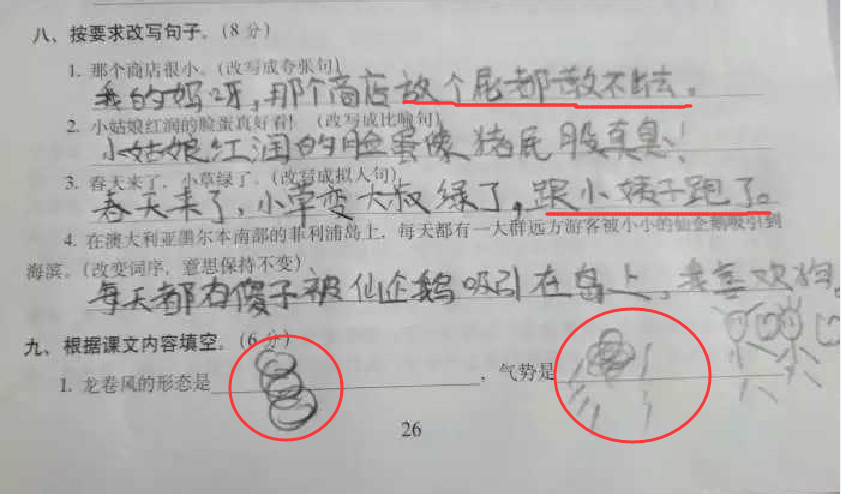 八、按要求改写句子。(8分)
1. 那个商店很小。(改写成夸张句)
我的妈呀,那个商店放个屁都散不出去。
2. 小姑娘红润的脸蛋真好看!(改写成比喻句)
小姑娘红润的脸蛋像猪屁股真臭!
3. 春天来了,小草绿了。(改写成拟人句)
春天来了,小草变大叔绿了,跟小姨子跑了。
4. 在澳大利亚墨尔本南部的菲利浦岛上,每天都有一大群远方游客被小小的仙企鹅吸引到
海滨。(改变词序,意思保持不变)
每天都有傻子被仙企鹅吸引在岛上,我喜欢狗。
九、根据课文内容填空。(6分)
1. 龙卷风的形态是 ,气势是
26